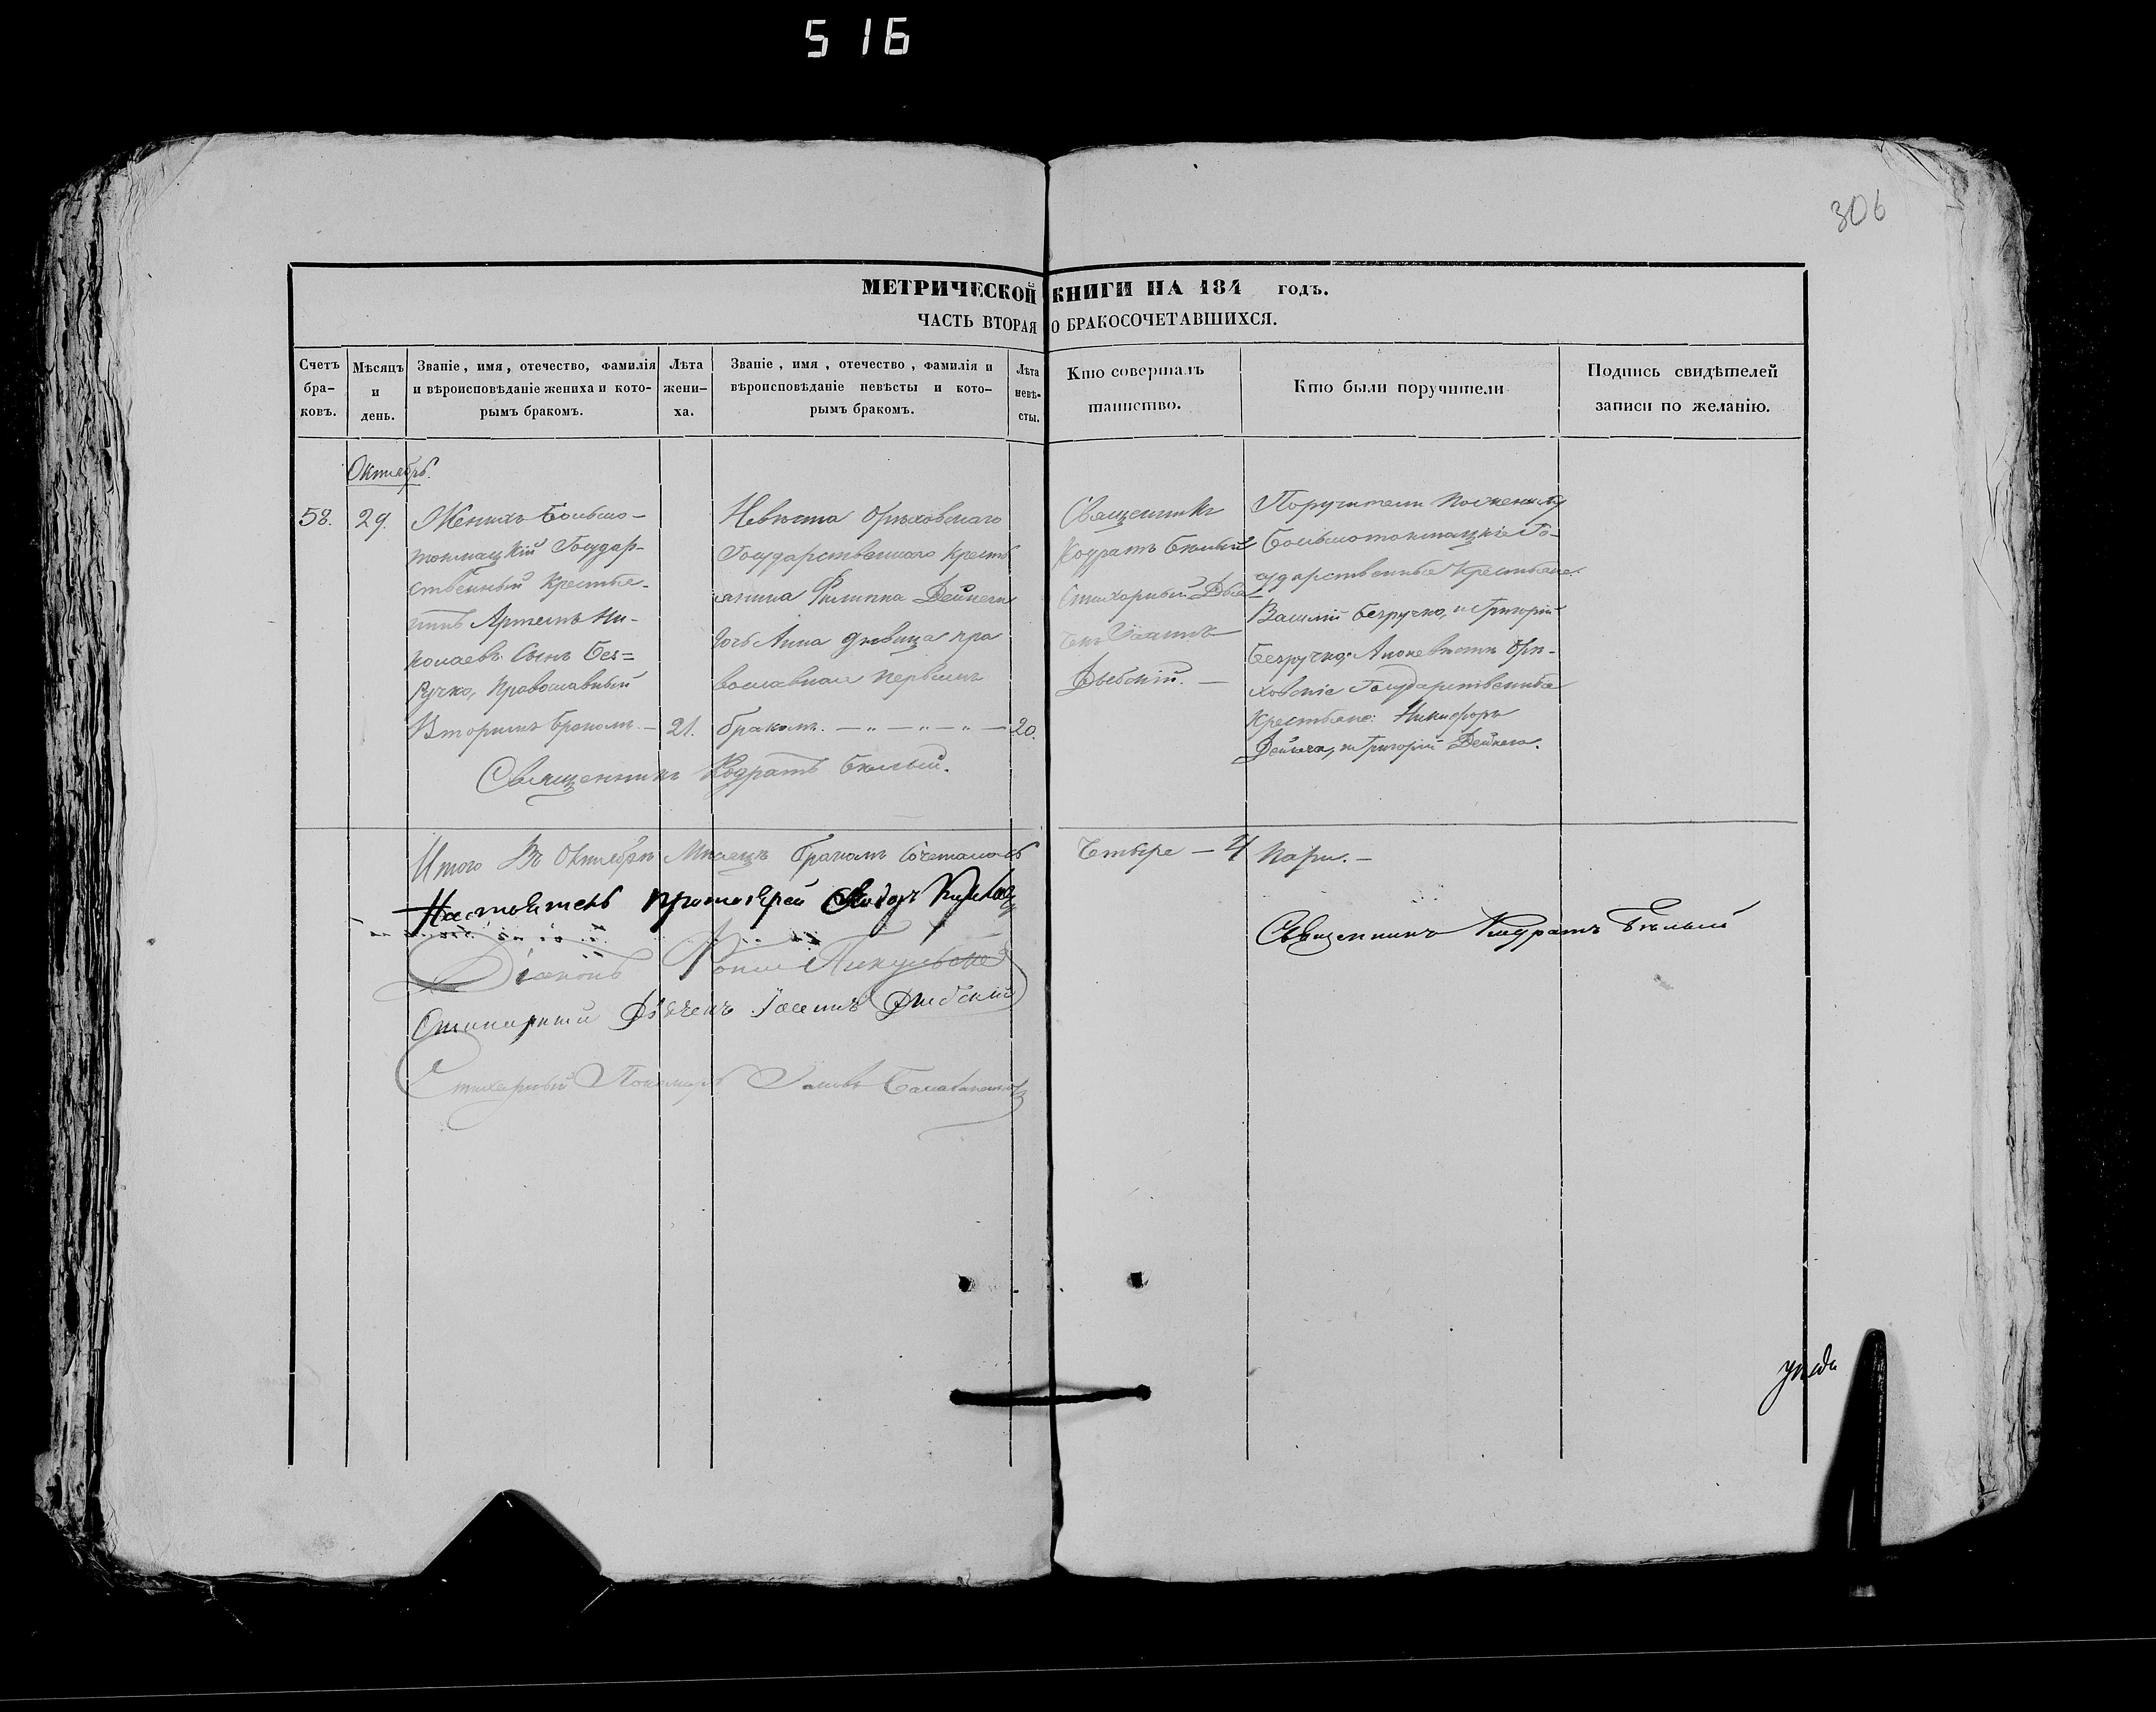 516
306
МЕТРИЧЕСКОЙ КНИГИ НА 184 годъ.
ЧАСТЬ ВТОРАЯ О БРАКОСОЧЕТАВШИХСЯ.
Счетъ бра-
ковъ.
Мѣсяцъ
и
день.
Званіе, имя, отечество, фамилія
и вѣроисповѣданіе жениха и кото-
рымъ бракомъ.
Лѣта
жени-
ха.
Званіе, имя, отечество, фамилія и
вѣроисповѣданіе невѣсты и кото-
рымъ бракомъ.
Лѣта
невѣ-
сты.
Кто совершалъ
таинство.
Кто были поручители
Подпись свидѣтелей
записи по желанію.
Октябрь.
58.
29.
Женихъ Большо-
токмацкій Государ-
ственный Крестья-
нинъ Артемъ Ни-
колаевъ Сынъ Без=
ручко, Православный
Вторымъ бракомъ. —
21.
Невѣста Орѣховскаго
Государственнаго Кресть
янина Филиппа Дейнеги
дочь Анна дѣвица пра
вославная первымъ
бракомъ. — „ — „ — „ —
20.
Священникъ
Кодратъ Бѣлый
Стихарный Дья-
чекъ
Дыбскій. —
Поручители По женихѣ
Большотокмацкіе Го-
сударственные Крестьяне
Василій Безручко, и Григорій
Безручко; А по невѣстѣ Орѣ-
ховскіе Государственные
Крестьяне: Никифоръ
Дейнега, и Григорій Дейнега.
Священникъ Кодратъ Бѣлый.
Итого Въ Октябрѣ Мѣсяцѣ Бракомъ Сочеталось Четыре — 4 пары. —
Настоятель Протоіерей
Священникъ Кодратъ Бѣлый
Діаконъ
Стихарный Дьячекъ Дыбскій
Стихарный Пономарь